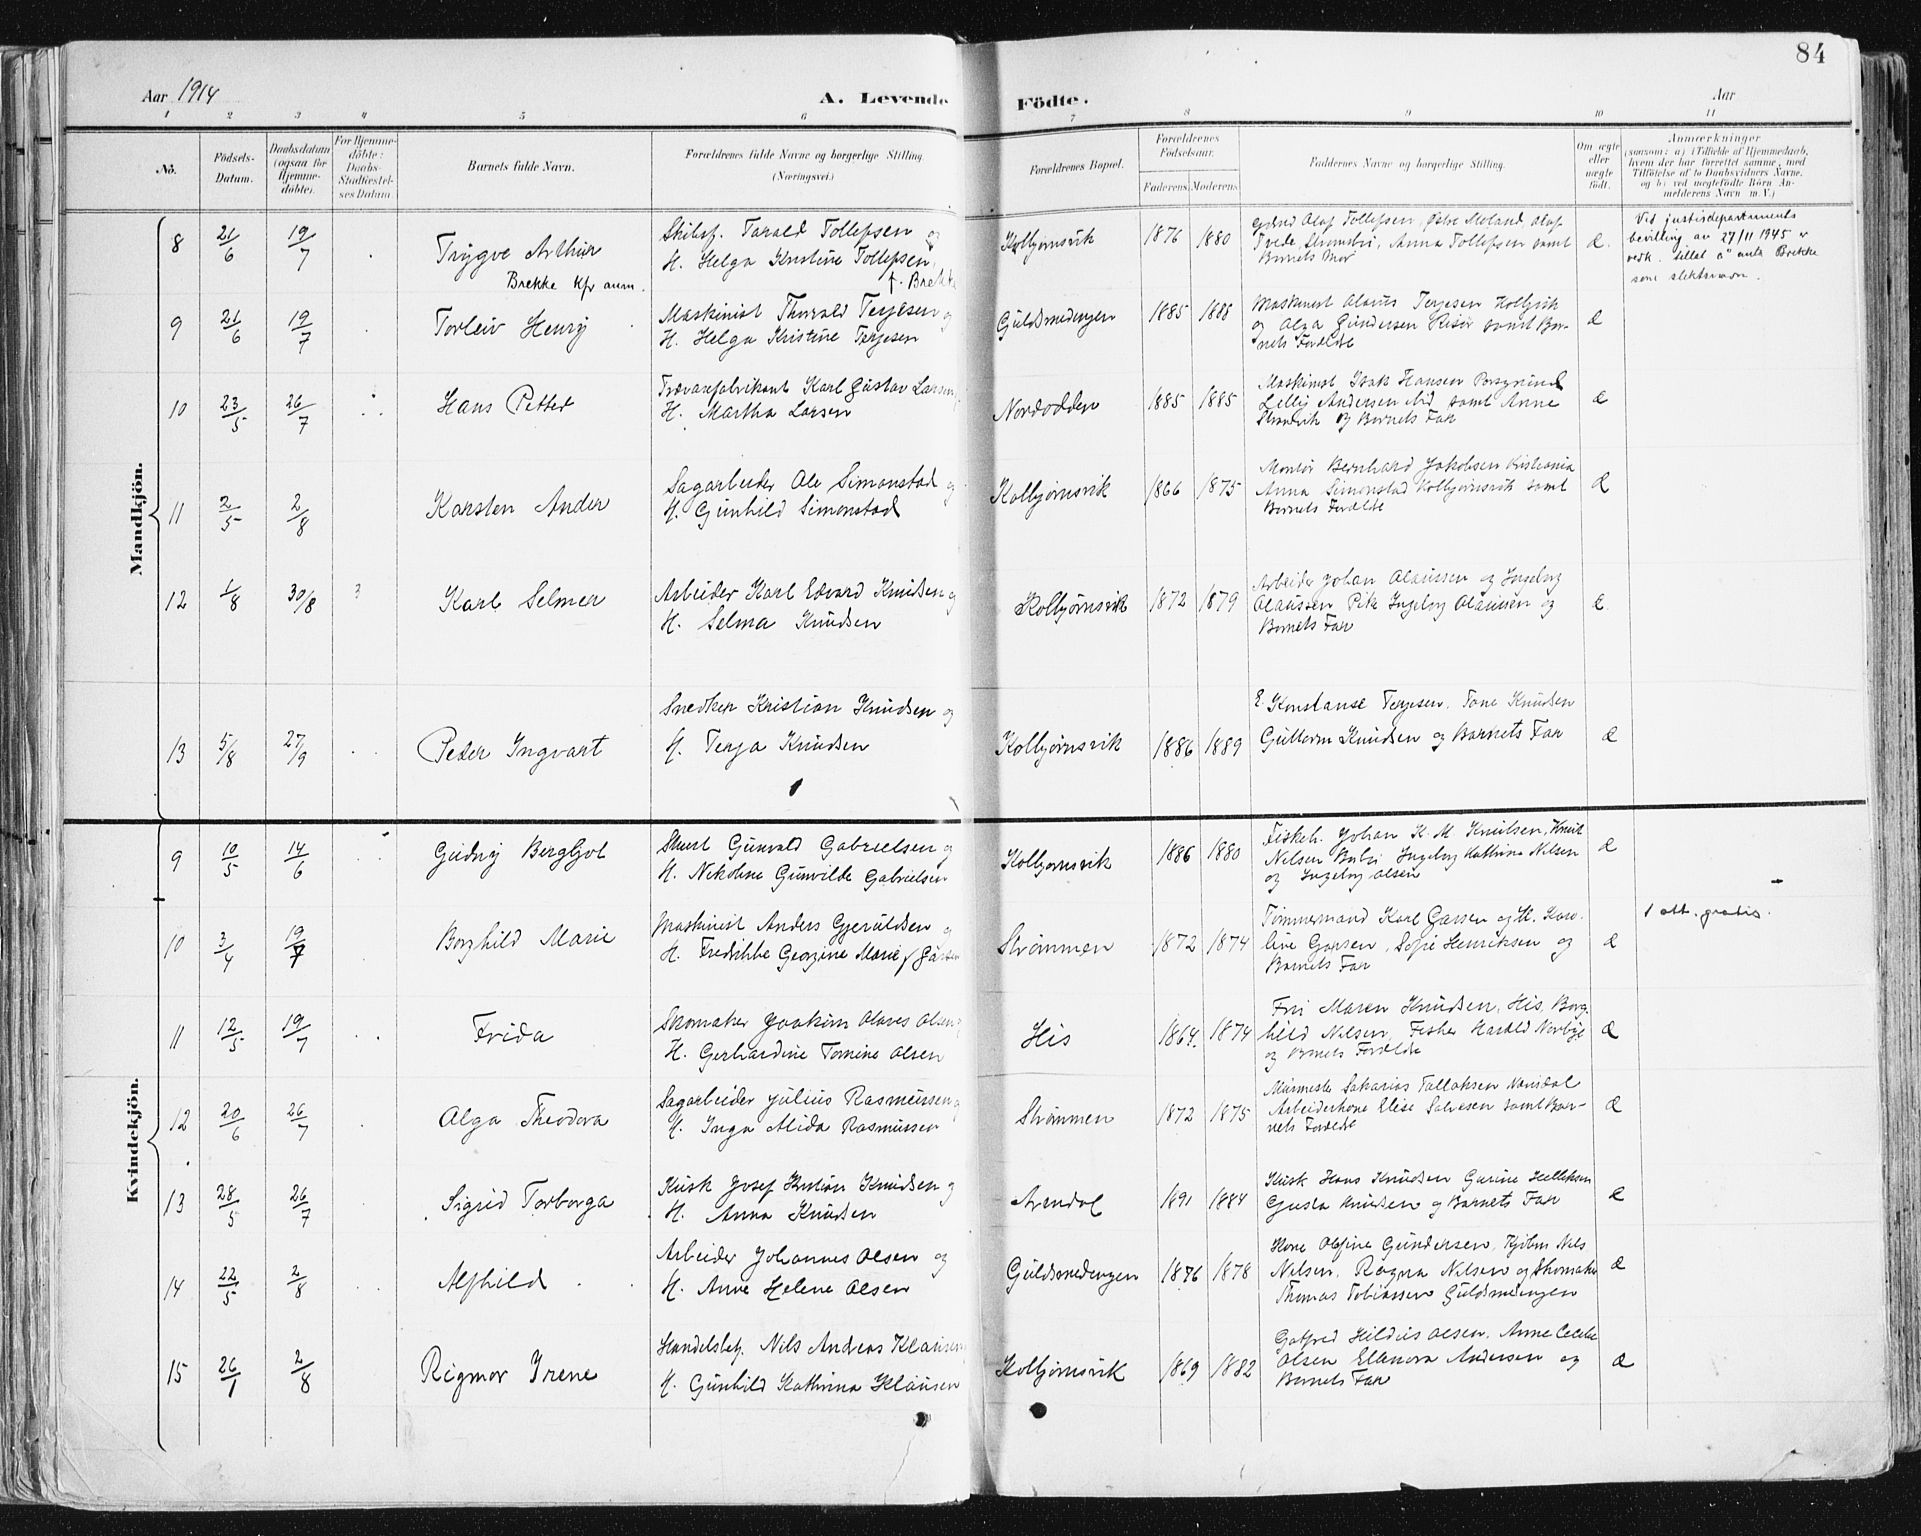 84
Aar 1914
A. Levende Födte.
Aar
1 2 3 4 5 6 7 8 9 10 11
No.
Födsels-Datum.
Daabsdatum (ogsaa for Hjemmedöbte).
For Hjemmedöbte: Daabs-Stadfæstelses Datum
Barnets fulde Navn.
Forældrenes fulde Navne og borgerlige Stilling. (Næringsvei.)
Forældrenes Bopæl.
Forældrenes Födselsaar.
Faderens. Moderens.
Faddernes Navne og borgerlige Stilling.
Om ægte eller uægte födt.
Anmærkninger
(saasom: a) i Tilfælde af Hjemmedaab, hvem der har forrettet samme, med Tilföielse af to Daabsvidners Navne, og b) ved uægtefödte Börn Anmelderens Navn m. V.)
Mandkjön.
8 21/6 19/7 Trygve Arthur
Brekke kfr anm.
Skibsf. Tarald Tollefsen og
H. Helga Kristine Tollefsen,
f. Brekke
Kolbjørnsvik 1876 1880
Olaf Tollefsen, Østre Moland, Olaf
Anna Tollefsen samt
Barnets Mor
Æ
Ved justisdepartements
bevilling av 27/11 1945 er
vedk. tillat å anta Brekke
som slektsnavn.
9 21/6 19/7 Torleiv Henry
Maskinist Thorvald Terjesen og
H. Helga Kristine Terjesen
Guldsmedengen 1885 1888
Maskinist Olaus Terjesen
og Olga Gundersen Risør samt Bar-
nets Forældre
Æ
10 23/5 26/7 Hans Petter
Trævarefabrikant Karl Gustav Larsen
H. Martha Larsen
Nordodden 1885 1885
Maskinist Isak Hansen Porsgrund
Lilly Andersen ibid samt Anne
og Barnets Far
Æ
11 2/5 2/8 Karsten Ander
Sagarbeider Ole Simonstad og
H. Gunhild Simonstad
Kolbjørnsvik 1866 1875
Montør Bernhard Jakobsen Kristiania
Anna Simonstad Kolbjørnsvik samt
Barnets Forældre
Æ
12 1/8 30/8 3 Karl Selmer
Arbeider Karl Edvard Knudsen og
H. Selma Knudsen
Kolbjørnsvik 1872 1879
Arbeider Johan Olaussen og Ingeborg
Olaussen Pike Ingeborg Olaussen og
Barnets Far
Æ
13 5/8 27/9 Peder Ingvart
Snedker Kristian Knudsen og
H. Terja Knudsen
Kolbjørnsvik 1886 1889
E. Konstanse Terjesen. Tone Knudsen
Guttorm Knudsen og Barnets Far
Æ
Kvindekjön.
9 10/5 14/6 Gudny Bergljot
Gunvald Gabrielsen og
H. Nikoline Gunvilde Gabrielsen
Kolbjørnsvik 1886 1880
Fiskeh. Johan K. M. Knudsen, Knut
Nilsen Ingeborg Kathrine Nilsen
og Ingeborg Olsen
Æ
10 3/4 19/7 Borghild Marie
Maskinist Anders Gjeruldsen og
H. Fredrikke Georgine Marie f
Strømmen 1872 1874
Tømmermand Karl Garsen og H. Karo-
line Garsen, Sofie Henriksen og
Barnets Far
Æ
1 att. gratis.
11 12/5 19/7 Frida
Skomaker Joakim Olaves Olsen
H. Gerhardine Tomine Olsen
His 1864. 1874
Fru Maren Knudsen, His, Borg-
hild Nilsen, Fisker Harald
og Barnets Forældre
Æ
12 20/6 26/7 Olga Theodora
Sagarbeider Julius Rasmussen og
H. Inga Alida Rasmussen
Strømmen 1872 1875
Murmester Sakarias Tallaksen
Arbeiderkone Elise Salvesen samt Bar-
nets Forældre
Æ
13 28/5 26/7 Sigrid Torborga
Kusk Josef Kristian Knudsen og
H. Anna Knudsen
Arendal 1891 1884
Kusk Hans Knudsen Gurine
Gusta Knudsen og Barnets Far
Æ
14 22/5 2/8 Alfhild
Arbeider Johannes Olsen og
H. Anne Helene Olsen
Guldsmedengen 1876 1878
Kone Olfine Gundersen, Nils
Nilsen. Ragna Nilsen og Skomaker
Thomas Tobiassen Guldsmedengen
Æ
15 26/1 2/8 Rigmor Irene
Handelsbetj. Nils Andreas Klausen
H. Gunhild Kathrina Klausen
Kolbjørnsvik 1869 1882
Gotfred Hildus Olsen. Anne Cecilie
Olsen Ellenora Andersen og
Barnets Far
Æ